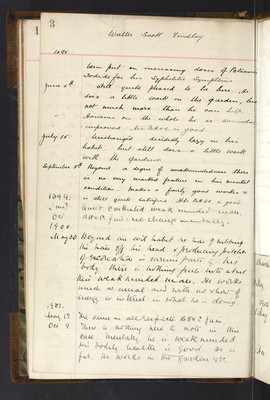 3
Walter Scott Findlay
1898
been put on increasing doses of Potassium
Iodide for his Syphilitic Symptoms
June 8th. Still quite pleased to be here. He
does a little work in the garden, but
not much more than he can help.
However on the whole he is somewhat
improved. His B.H. is good
July 15. Unchanged decidedly lazy in his
habits but still does a little work
with the gardener
September 8th Beyond a degree of weakmindedness there
is no very marked feature in his mental
condition. Makes a fairly good worker &
is still quite satisfied. His B.H. is good
1899.
Quiet contented weak minded man.
Oct B.H. & C. fair: no change mentally.
1900.
May 30 Beyond an evil habit he has of rubbing
the hair off his head & producing patches
of in various parts of his
body there is nothing fresh to note about
this weak minded man. He works
much as usual and with no show of
energy or interest in what he is doing
1901.
May 19 The same in all respects B.H. & C. fair.
Oct 9. There is nothing new to note in this
case mentally he is weakminded
his bodily health is good. He is
fat. He works in the garden